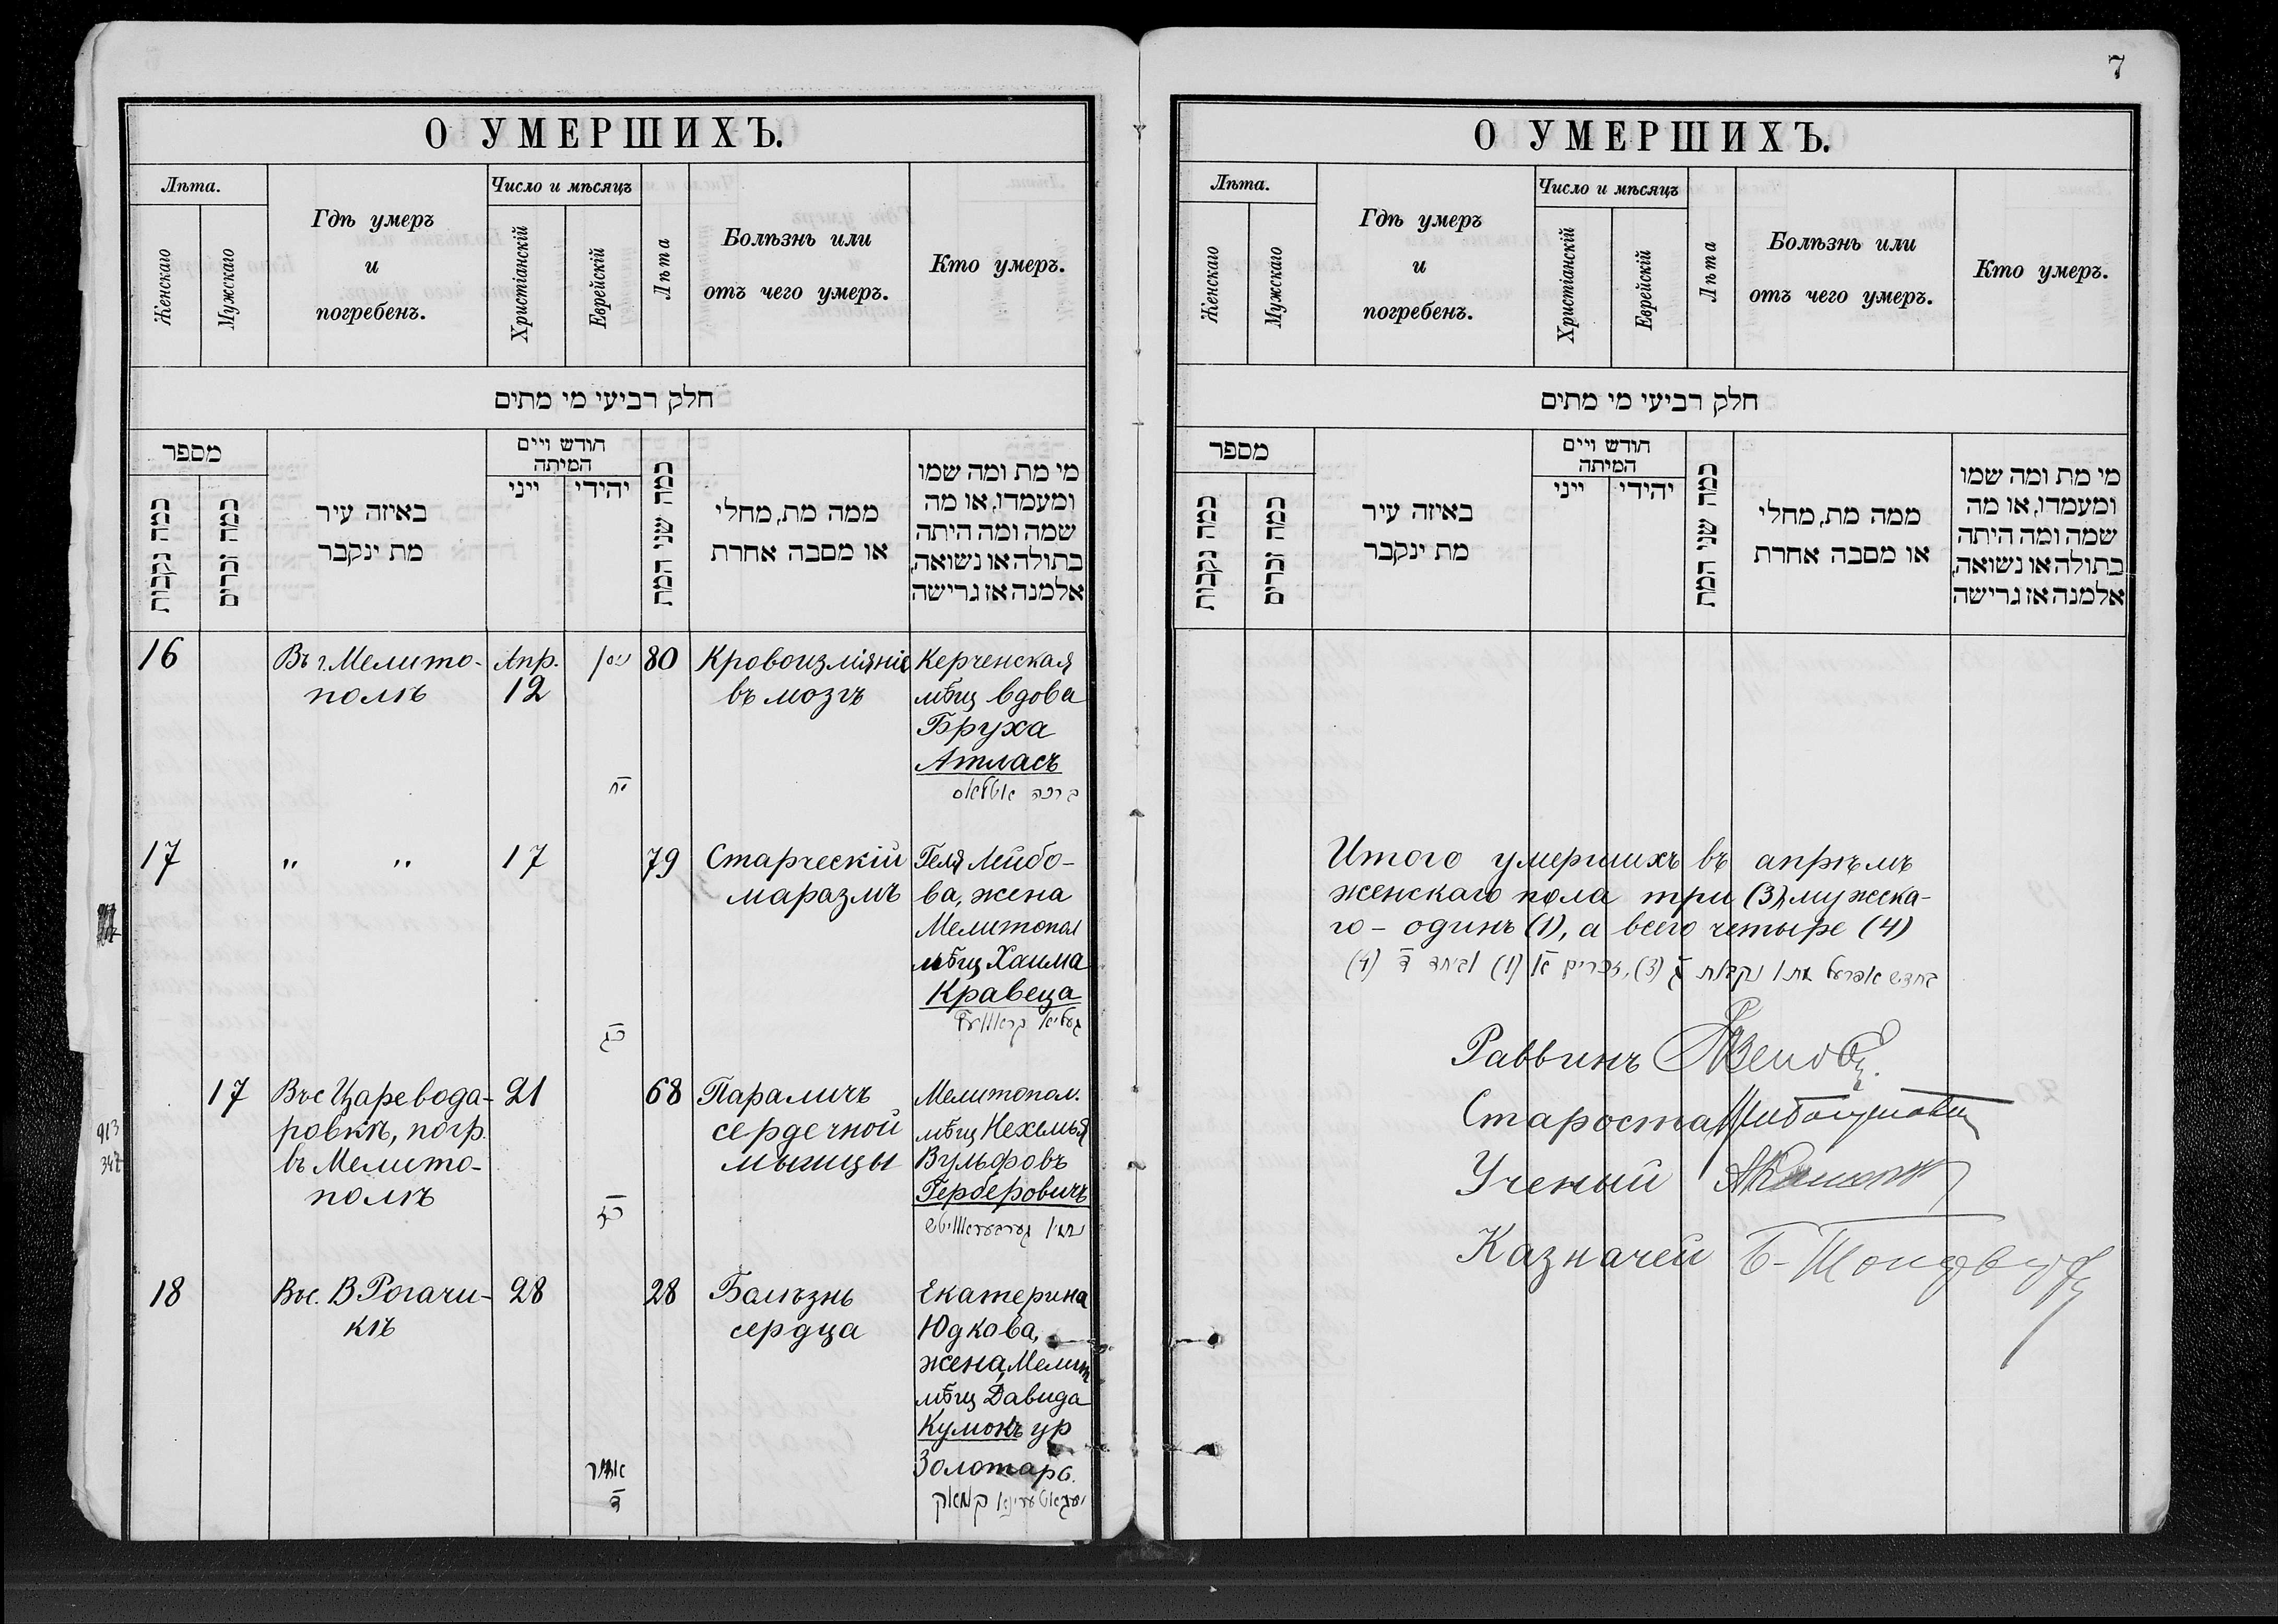 О УМЕРШИХЪ.
Лѣта.
Женскаго
Мужскаго
Гдѣ умеръ
и
погребенъ.
Число и мѣсяцъ
Христіанскій
Еврейскій
Лѣта
Болѣзнь или
отъ чего умеръ.
Кто умеръ.
חלק רביעי מי מתים
מספר
כמה נקבות
כמה זכרים
באיזה עיר
מת ינקבר
חודש ויים
המיתה
ייני
יהידי
כמה שני המת
ממה מת, מחלי
או מסבה אחרת
מי מת ומה שמו
ומעמדו, או מה
שמה ומה היתה
בתולה או נשואה,
אלמנה אז גרישה
16
Въ г. Мелито-
полѣ
Апр.
12
ניסן
יח
80
Кровоизліяніе
въ мозгъ
Керченская
мѣщ вдова
Бруха
Атласъ
ברכה אטלאס
17
" "
17
כג
79
Старческій
маразмъ
Геля Лейбо-
ва, жена
Мелитопол
мѣщ Хаима
Кравеца
17
Въ с Царевода-
ровкѣ, погр.
въ Мелито-
полѣ
21
כז
68
Параличъ
сердечной
мышцы
Мелитопол.
мѣщ Нехемья
Вульфовъ
Герберовичъ
18
Въ с. В Рогачи-
кѣ
28
אייר
ד
28
Болѣзнь
сердца
Екатерина
Юдкова,
жена Мелит
мѣщ Давида
Кумокъ ур
Золотарь.
יעקאטערינא קומאק
913
347
7
О УМЕРШИХЪ.
Лѣта.
Женскаго
Мужскаго
Гдѣ умеръ
и
погребенъ.
Число и мѣсяцъ
Христіанскій
Еврейскій
Лѣта
Болѣзнь или
отъ чего умеръ.
Кто умеръ.
חלק רביעי מי מתים
מספר
כמה נקבות
כמה זכרים
באיזה עיר
מת ינקבר
חודש ויים
המיתה
ייני
יהידי
כמה שני המת
ממה מת, מחלי
או מסבה אחרת
מי מת ומה שמו
ומעמדו, או מה
שמה ומה היתה
בתולה או נשואה,
אלמנה אז גרישה
Итого умершихъ въ апрѣлѣ
женскаго пола три (3) мужска-
го - одинъ (1), а всего четыре (4)
בחדש אפריל מתו נקבות ג (3), זכרים א (1) וביחד ד (4)
Раввинъ
Староста
Ученый
Казначей